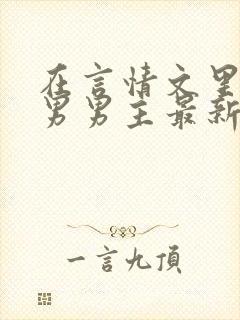 在言情文里
男男主最新
一言九頂